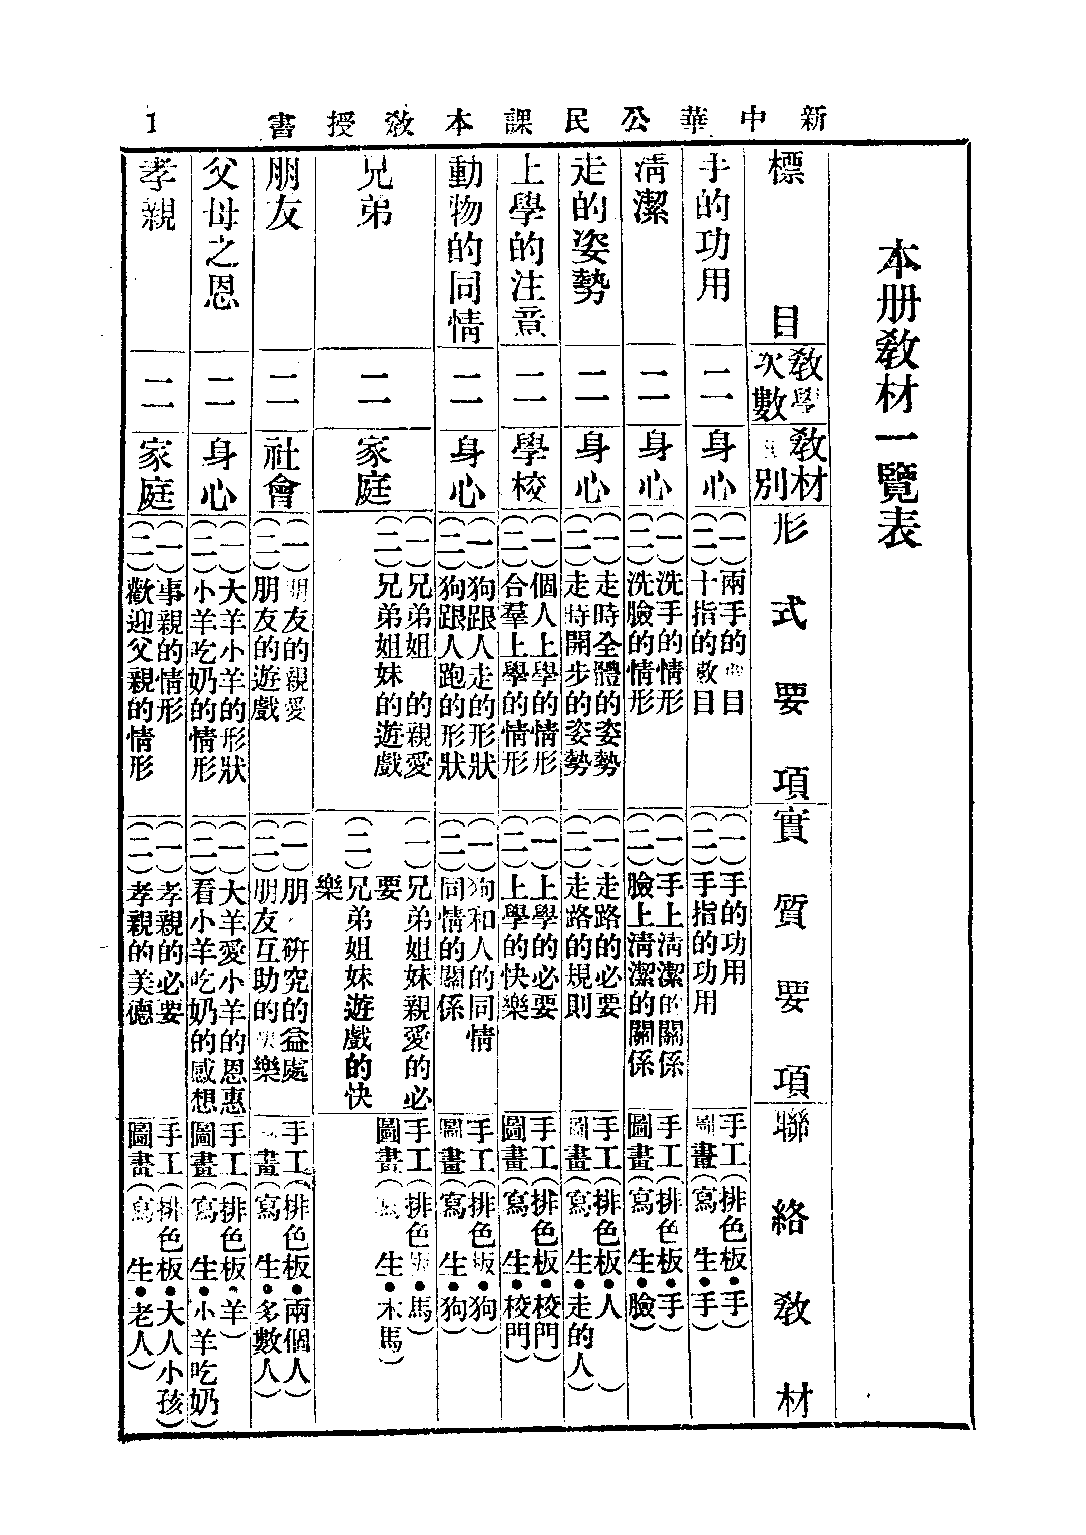 新中華公民課本教授書
1
本册教材一覽表
標目
教學次數
教材 別
形式要項
實質要項
聯絡教材
手的功用
二
身心
(一)兩手的 目
(二)十指的數目
(一)手的功用
(二)手指的功用
手工(排色板•手)
圖畫(寫生•手)
清潔
二
身心
(一)洗手的情形
(二)洗臉的情形
(一)手上清潔的關係
(二)臉上清潔的關係
手工(排色板•手)
圖畫(寫生•臉)
走的姿勢
二
身心
(一)走時全體的姿勢
(二)走時開步的姿勢
(一)走路的必要
(二)走路的規則
手工(排色板•人)
圖畫(寫生•走的人)
上學的注意
二
學校
(一)個人上學的情形
(二)合羣上學的情形
(一)上學的必要
(二)上學的快樂
手工(排色板•校門)
圖畫(寫生•校門)
動物的同情
二
身心
(一)狗跟人走的形狀
(二)狗跟人跑的形狀
(一)狗和人的同情
(二)同情的關係
手工(排色板•狗)
圖畫(寫生•狗)
兄弟
二
家庭
(一)兄弟姐 的親愛
(二)兄弟姐妹的遊戲
(一)兄弟姐妹親愛的必
要
(二)兄弟姐妹遊戲的快
樂
手工(排色板•馬)
圖畫( 生•木馬)
朋友
二
社會
(一)朋友的親愛
(二)朋友的遊戲
(一)朋 研究的益處
(二)朋友互助的快樂
手工(排色板•兩個人)
畫(寫生•多數人)
父母之恩
二
身心
(一)大羊小羊的形狀
(二)小羊吃奶的情形
(一)大羊愛小羊的恩惠
(二)看小羊吃奶的感想
手工(排色板•羊)
圖畫(寫生•小羊吃奶)
孝親
二
家庭
(一)事親的情形
(二)歡迎父親的情形
(一)孝親的必要
(二)孝親的美德
手工(排色板•大人小孩)
圖畫(寫生•老人)